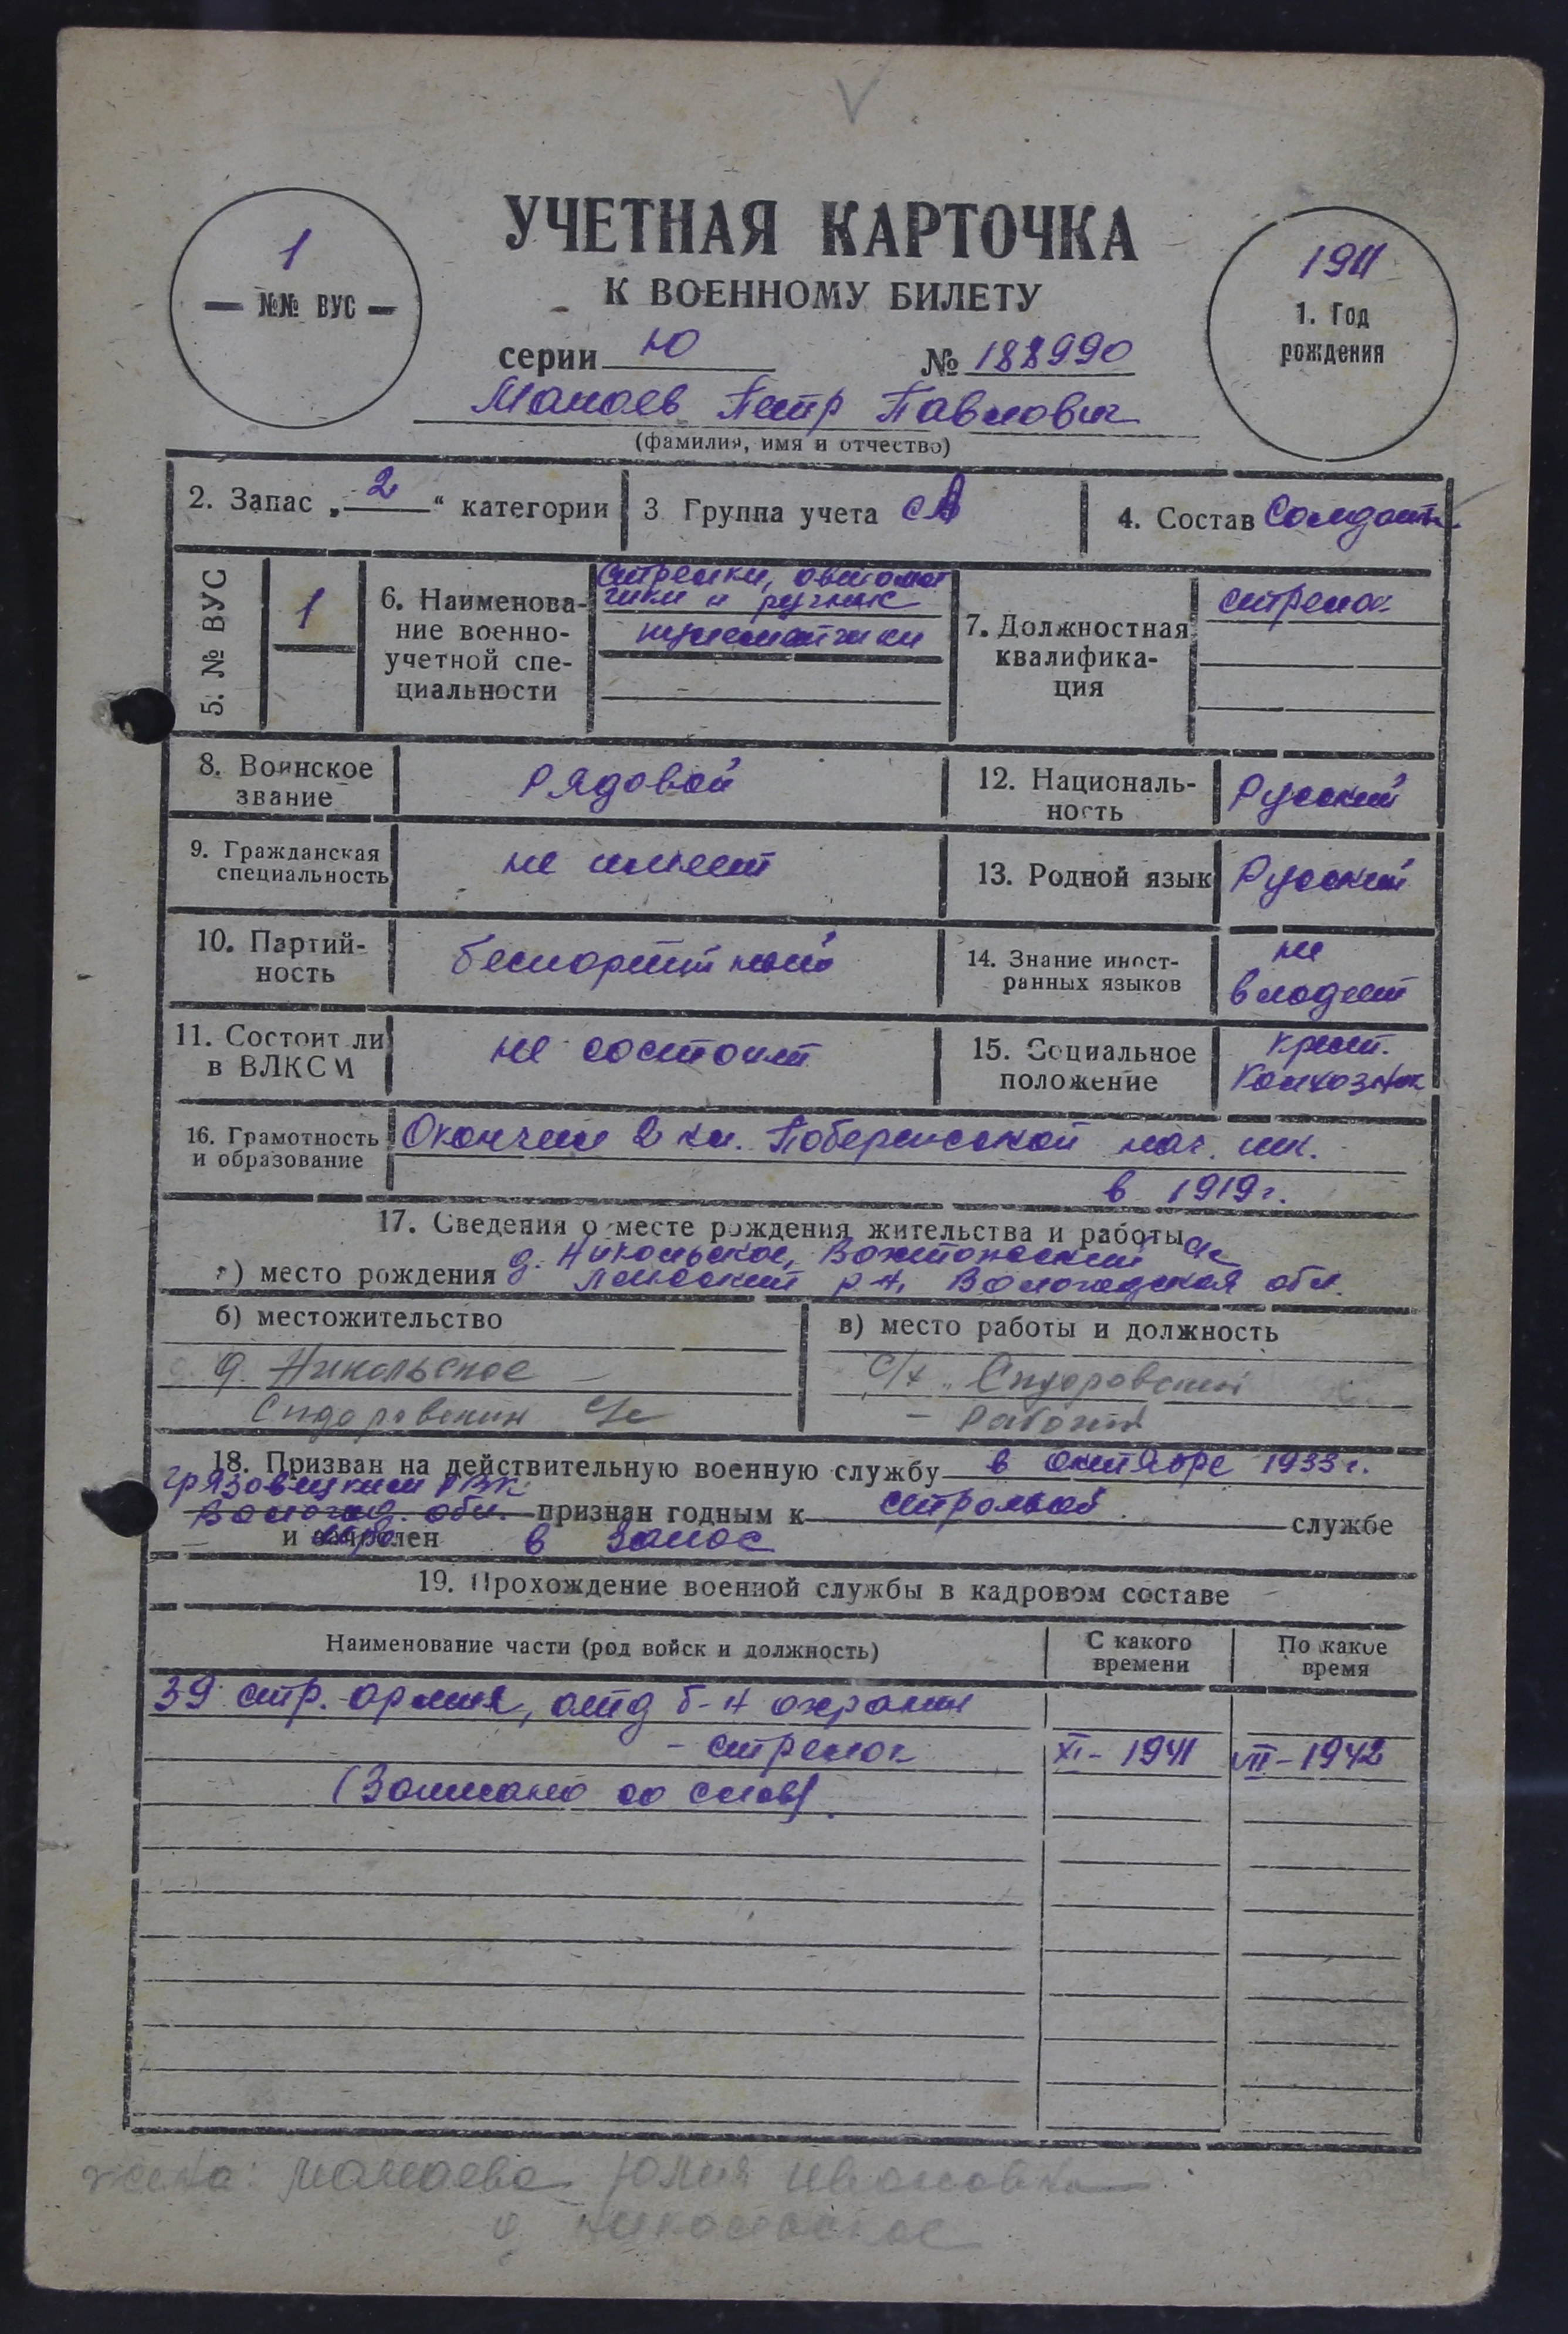 1
— №№ ВУС —
УЧЕТНАЯ КАРТОЧКА
К ВОЕННОМУ БИЛЕТУ
серии Ю № 188990
1911
1. Год
рождения
Петр Павлович
(фамилия, имя и отчество)
2. Запас „ 2 “ категории
3 Группа учета СА
4. Состав Солдаты
5. № ВУС
1
6. Наименова-
ние военно-
учетной спе-
циальности
стрелки, автомат
чики и ручные
пулеметчики
7. Должностная
квалифика-
ция
стрелок
8. Воинское
звание
рядовой
12. Националь-
ность
Русский
9. Гражданская
специальность
не имеет
13. Родной язык
Русский
10. Партий-
ность
беспартийный
14. Знание иност-
ранных языков
не
владеет
11. Состоит ли
в ВЛКСМ
не состоит
15. Социальное
положение
крест.
Колхозник
16. Грамотность
и образование
Окончил 2 кл. нач. шк.
в 1919 г.
17. Сведения о месте рождения жительства и работы
а) место рождения д. Никольское, с/с
р-н, Вологодская обл.
б) местожительство
д. Никольское
Сидоровский с/с
в) место работы и должность
с/х „Сидоровский
- рабочий
18. Призван на действительную военную службу в октябре 1933 г.
Грязовецким РВК
Вологод. обл. признан годным к строевой службе
и зачислен в запас
19. Прохождение военной службы в кадровом составе
Наименование части (род войск и должность)
С какого
времени
По какое
время
39 стр. армия, отд б-н охраны
- стрелок XI - 1941 VII - 1942
(Записано со слов).
жена: Юлия Ивановна
д Никольское